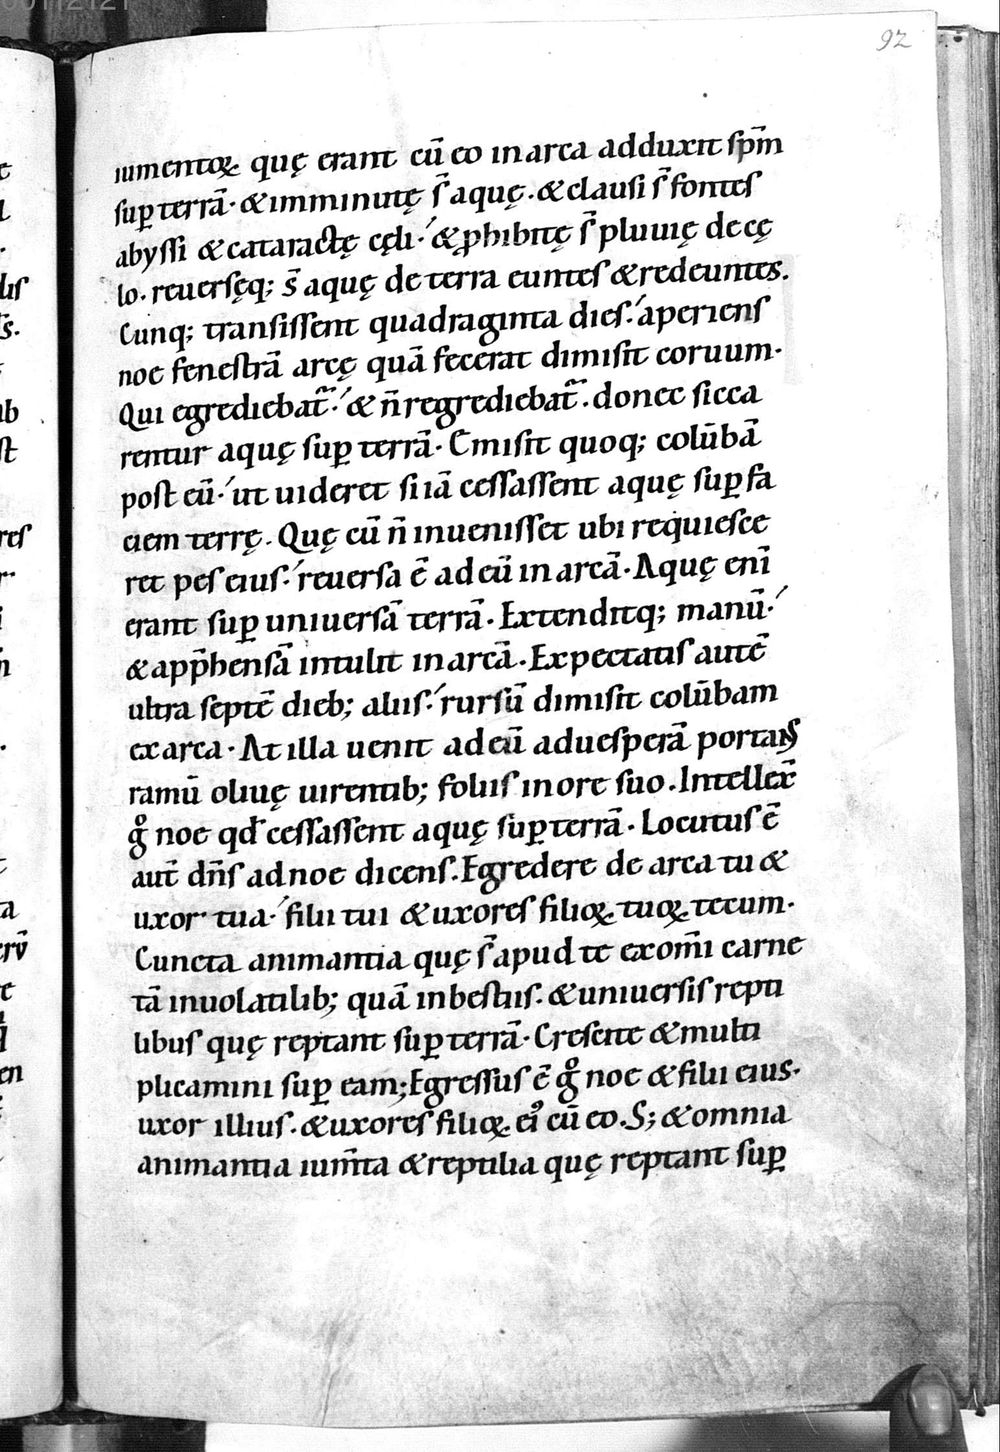 92
iumentoꝝ quę erant cū eo in arca adduxit sp̄m
sup̱ terrā· & imminutę s̄ aquę· & clausi s̄ fontes
abyssi & cataractę cęli·́ & ꝓhibitę s̄ pluuię de cę
lo· reuersęq; s̄ aquę de terra euntes & redeuntes.
Cunq; transissent quadraginta dies·́ aperiens
noe fenestrā arcę quā fecerat dimisit coruum·
Qui egrediebat᷑·́ & n̄ regrediebat᷑· donec sicca
rentur aquę sup̱ terrā· Emisit quoq; colūbā
post eū·́ ut uideret si iā cessassent aquę sup̱ fa
ciem terrę. Quę cū n̄ inuenisset ubi requiesce
ret pes eius·́ reuersa ē ad eū in arcā· Aquę eni̅
erant sup̱ uniuersā terrā· Extenditq; manū·́
& app̄hensā intulit in arcā· Expectatis autē
ultra septē dieb; aliis·́ rursū dimisit colūbam
ex arca· At illa uenit ad eū ad uesperā portans
ramū oliuę uirentib; foliis in ore suo. Intellex̄
gͦ noe qđ cessassent aquę sup̱ terrā· Locutus ē
aut̄ dn̄s ad noe dicens. Egredere de arca tu &
uxor tua·́ filii tui & uxores filioꝝ tuoꝝ tecum·
Cuncta animantia quę s̄ apud te ex om̄i carne
tā in uolatilib; quā in bestiis· & uniuersis repti
libus quę reptant sup̱ terrā· Crescite & multi
plicamini sup̱ eam; Egressus ē gͦ noe & filii eius·
uxor illius· & uxores filioꝝ ei᾿ cū eo. S; & omnia
animantia ium̄ta & reptilia quę reptant sup̱